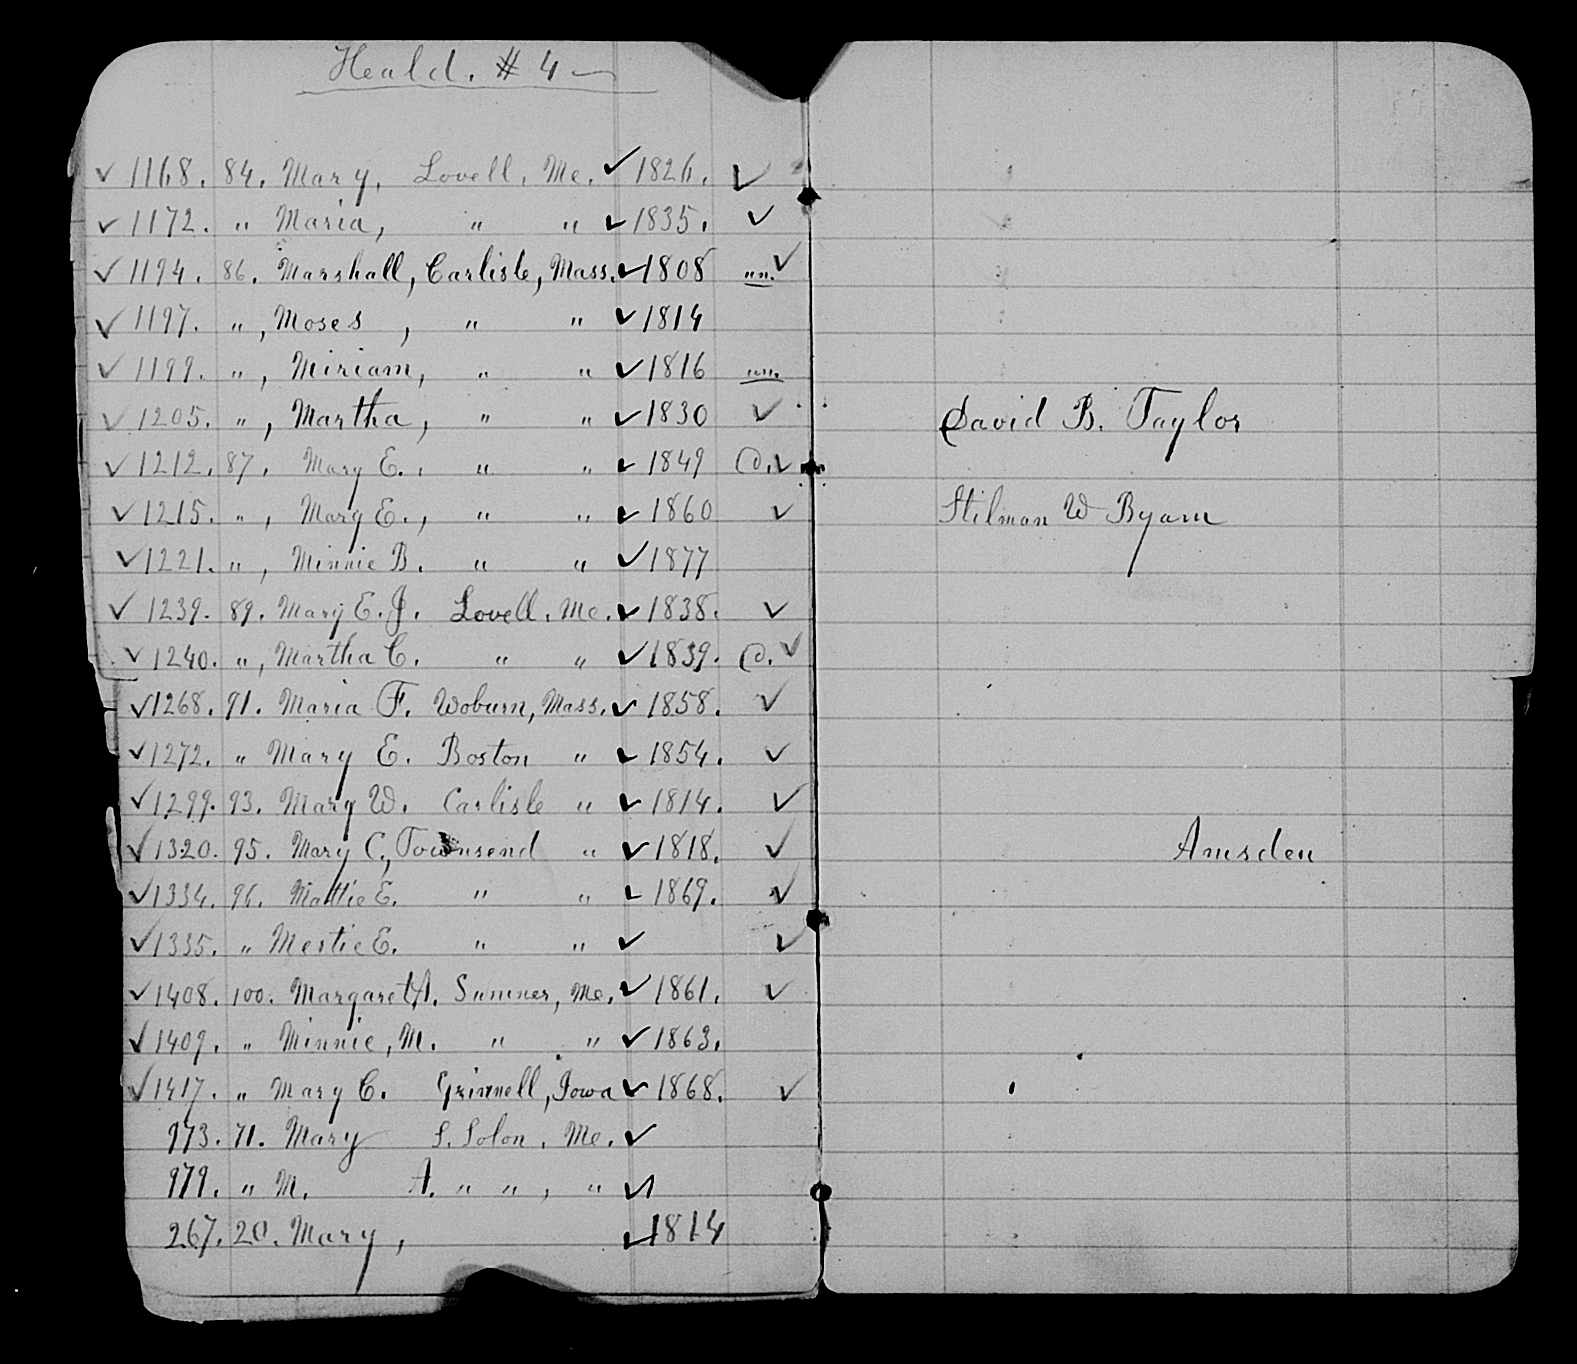 Heald. # 4
✓ 1168. 84. Mary, Lovell, Me. ✓ 1826. ✓
✓ 1172. " Maria, " " ✓ 1835. ✓
✓ 1194. 86. Marshall, Carlisle, Mass. ✓ 1808 "". ✓
✓ 1197. ", Moses, " " ✓ 1814
✓ 1199. ", Miriam, " " ✓ 1816
✓ 1205. ", Martha, " " ✓ 1830 ✓ David B. Taylor
✓ 1212. 87. Mary E., " " ✓ 1849 @. ✓
✓ 1215. ", Mary E., " " ✓ 1860 ✓ Stilman W Byam
✓ 1221. ", Minnie B. " " ✓ 1877
✓ 1239. 89. Mary E. J. Lovell, Me. ✓ 1838. ✓
✓ 1240. ", Martha C. " " ✓ 1839. @. ✓
✓ 1268. 91. Maria F. Woburn, Mass. ✓ 1858. ✓
✓ 1272. " Mary E. Boston " ✓ 1854. ✓
✓ 1299. 93. Mary W. Carlisle " ✓ 1814. ✓
✓ 1320. 95. Mary C., Townsend " ✓ 1818. ✓ Amsden
✓ 1334. 96. Mattie E. " " ✓ 1869. ✓
✓ 1335. " Mertie E. " " ✓ ✓
✓ 1408. 100. Margaret A. Sumner, Me. ✓ 1861. ✓
✓ 1409. " Minnie, M. " " ✓ 1863.
✓ 1417. " Mary C. Grinnell, Iowa ✓ 1868. ✓
973. 71. Mary S. Solon, Me. ✓
979. " M. A. " ", " ✓
267. 20. Mary, ✓ 1814